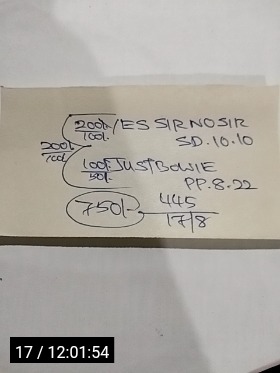 200/- YES SIR NO SIR
100/- SD.10.10
200/-
100/-
100/- JUST BOWIE
50/- PP.8.22
750/- 445
17/8
17 / 12:01:54